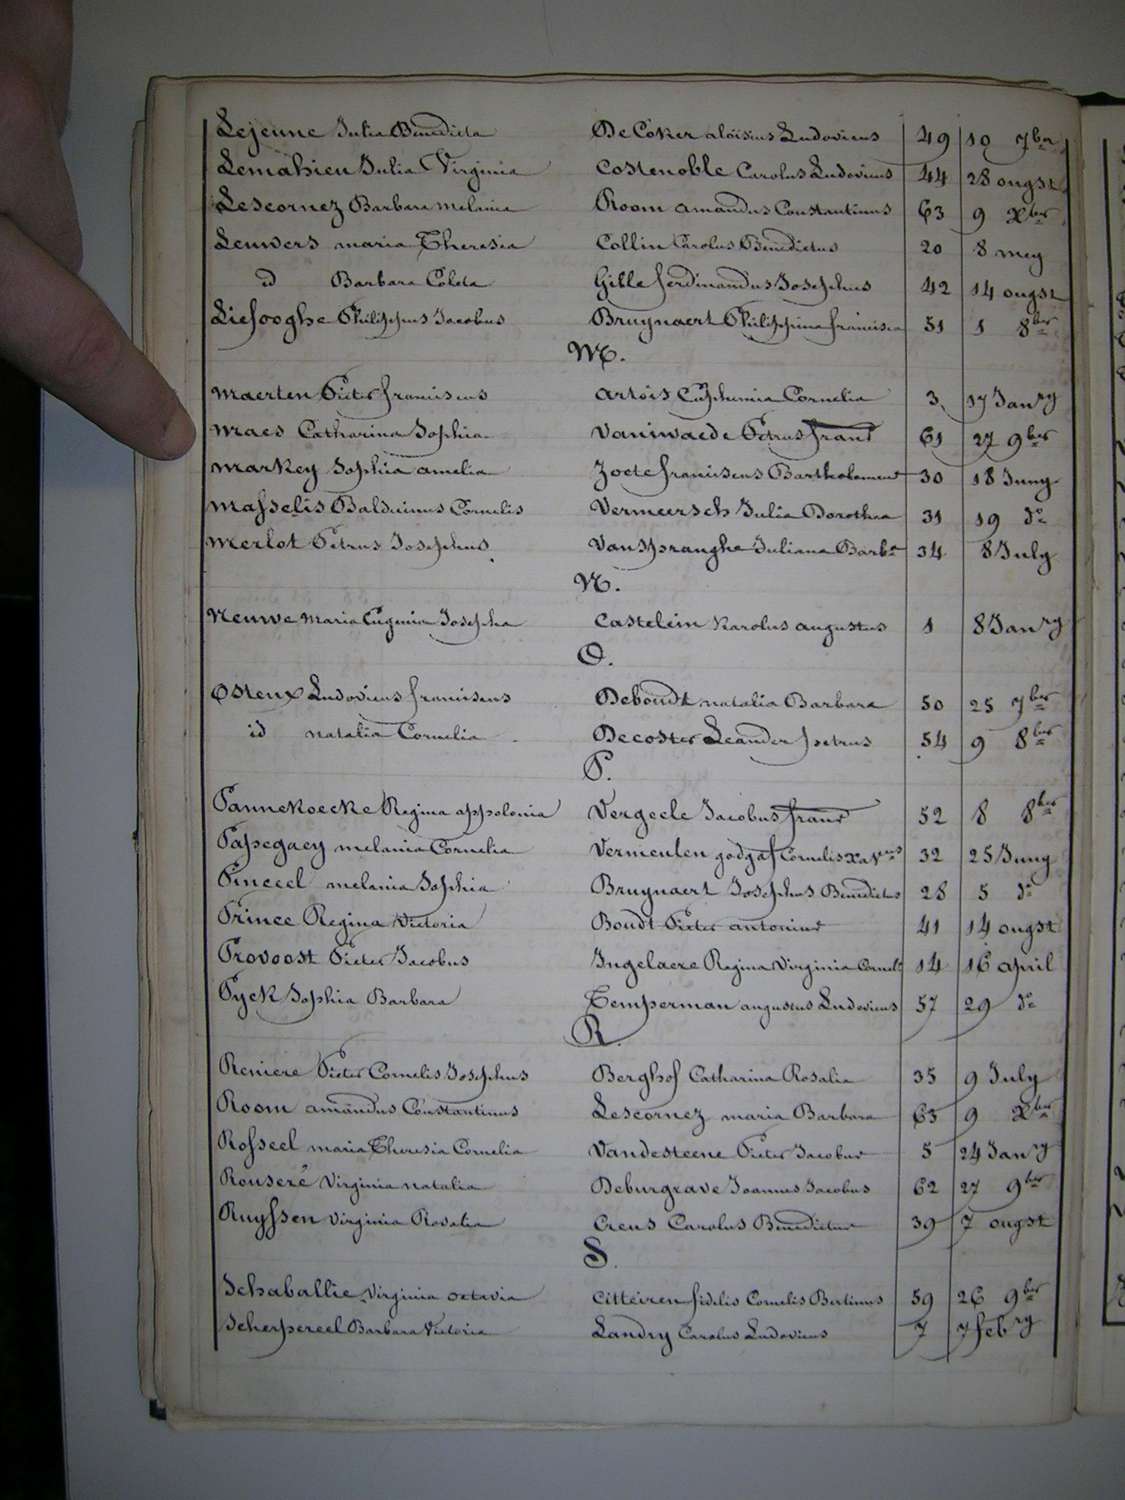 Lejeune Julia Benedicta DeCoker aloisius Ludovicus 49 10 7ber
Lemahieu Julia Virginia Costenoble Carolus Ludovicus 44 28 ougst
Lescornez Barbara melania Room amandus Constantinus 63 9 Xber
Leuwers maria Theresia Collin Carolus Benedictus 20 8 mey
id Barbara Coleta Gille ferdinandus Josephus 42 14 ougst
Liefooghe Philippus Jacobus Bruynaert Philippina francisca 51 1 8ber
M.
Maerten Pieter franciscus Artois Euphemia Cornelia 3 17 Janry
Maes Catharina Sophia Petrus franc 61 27 9ber
Markey Sophia amelia Zoete franciscus 30 18 Juny
Masselis Balduinus Cornelis Vermeersch Julia Dorothea 31 19 do
Merlot Petrus Josephus Vanspranghe Juliana Barba 34 8 July
N.
Neuwe Maria Eugenia Josepha Castelein Karolus augustus 1 8 Janry
O.
Osteux Ludovicus franciscus Deboudt natalia Barbara 50 25 7ber
id natalia Cornelia Decoster Leander petrus 54 9 8ber
P.
Pannekoecke Regina appolonia Vergeele Jacobus franc 52 8 8ber
Papegaey melania Cornelia Vermeulen Cornelis 32 25 Juny
Pinceel melania Sophia Bruynaert Josephus Benedictus 28 5 do
Prince Regina Victoria Boudt Pieter antonius 41 14 ougst
Provoost Pieter Jacobus Ingelaere Regina Virginia Cornela 14 16 april
Pyck Sophia Barbara Temperman augustus Ludovicus 57 29 do
R.
Reniere Pieter Cornelis Josephus Berghof Catharina Rosalia 35 9 July
Room amandus Constantinus Lescornez maria Barbara 63 9 Xber
Rosseel maria Theresia Cornelia Vandesteene Pieter Jacobus 5 24 Janry
Rouseré Virginia natalia Deburgrave Joannes Jacobus 62 27 9ber
Ruyssen Virginia Rosalia Creus Carolus Benedictus 39 7 ougst
S.
Schaballie Virginia octavia Citteiren fidelis Cornelis Bertinus 59 26 9ber
Scherpereel Barbara Victoria Landry Carolus Ludovicus 7 7 febry